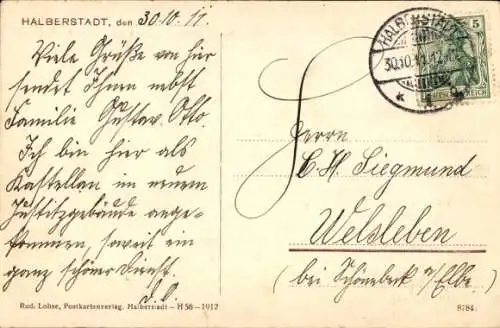 HALBERSTADT, den 30.10.11.
Viele Grüße von hier
sendet Ihnen nebst
Familie Gustav Otto.
Ich bin hier als
Kastellan im neuen
Justizgebäude ange-
kommen, soweit ein
ganz schöner Dienst.
D. O.
Rud. Lohse, Postkartenverlag, Halberstadt — H 56 - 1912
HALBERSTADT
30.10.11.12-1
5
Herrn
C. H. Siegmund
Welsleben
(bei Schönebeck a/Elbe.)
8784